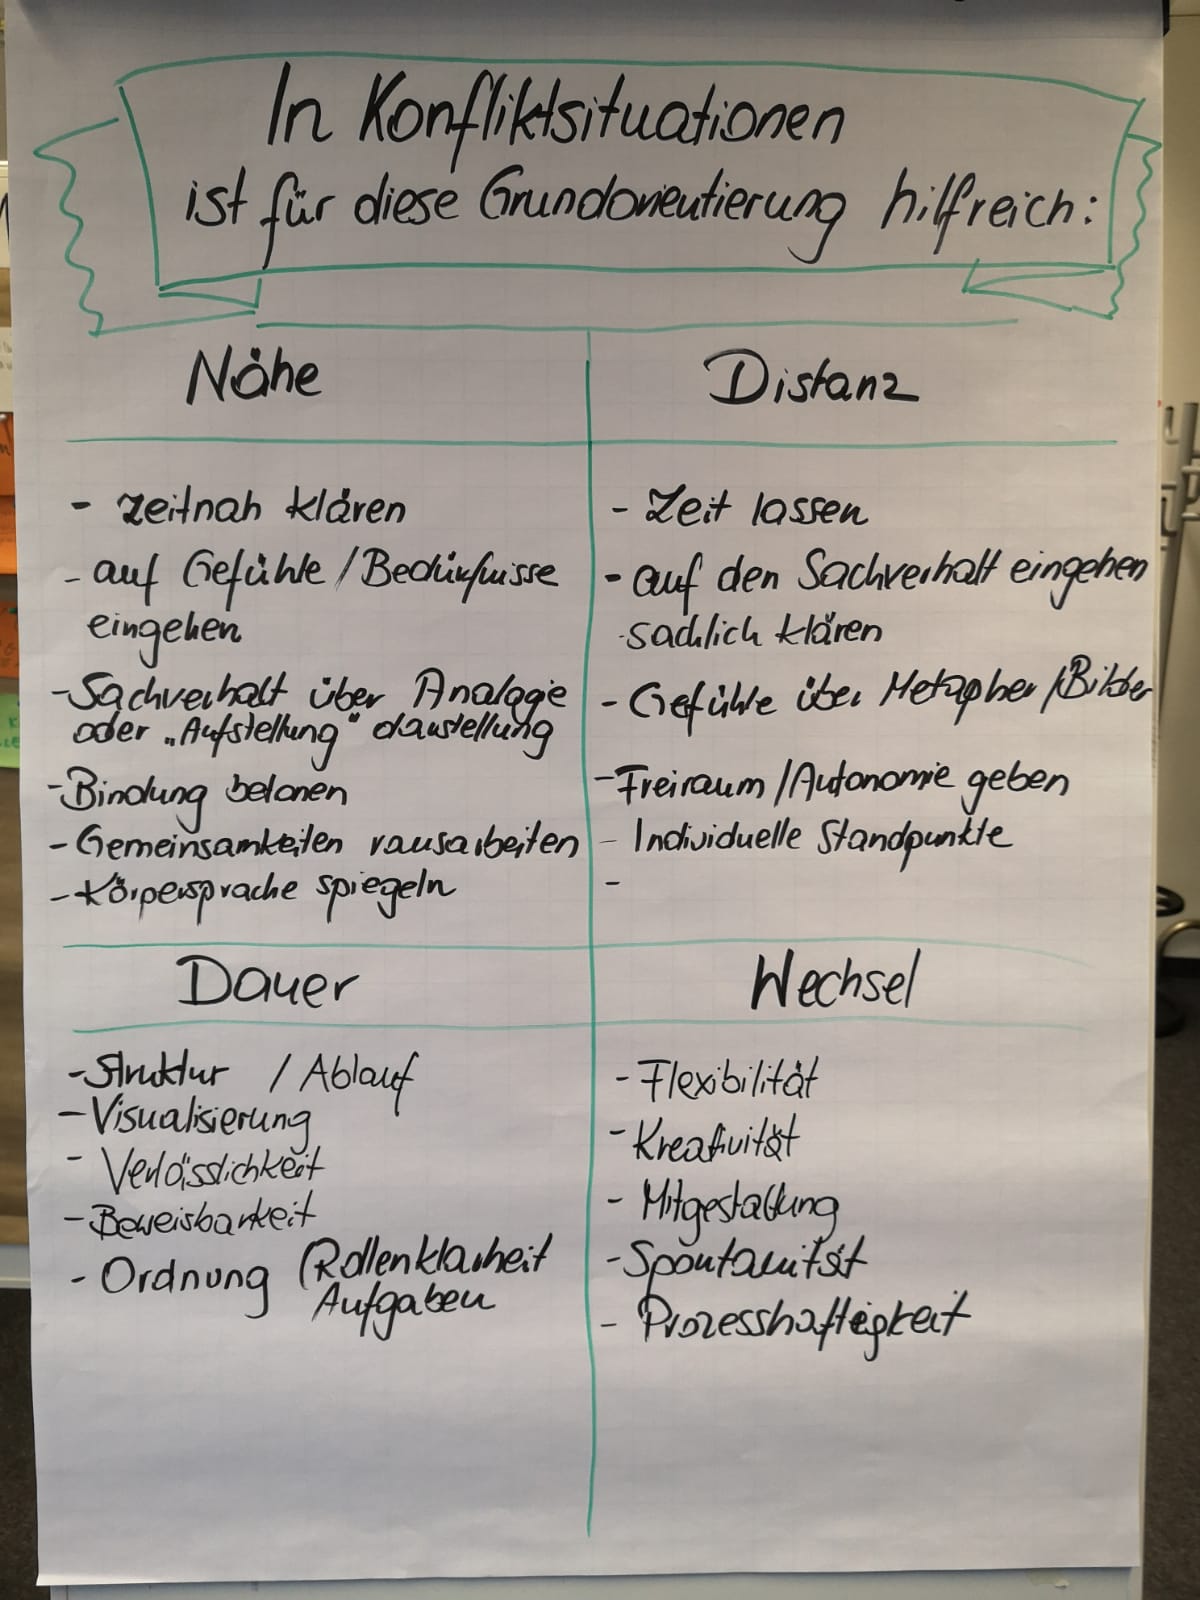 In Konfliktsituationen
ist für diese Grundorientierung hilfreich:
Nähe
- zeitnah klären
- auf Gefühle / Bedürfnisse
eingehen
- Sachverhalt über Analogie
oder „Aufstellung" darstellung
- Bindung betonen
- Gemeinsamkeiten rausarbeiten
- Körpersprache spiegeln
Distanz
- Zeit lassen
- auf den Sachverhalt eingehen
sachlich klären
- Gefühle über Metapher / Bilder
- Freiraum / Autonomie geben
- Individuelle Standpunkte
-
Dauer
- Struktur / Ablauf
- Visualisierung
- Verlässlichkeit
- Beweisbarkeit
- Ordnung (Rollenklarheit
Aufgaben
Wechsel
- Flexibilität
- Kreativität
- Mitgestaltung
- Spontanität
- Prozesshaftigkeit